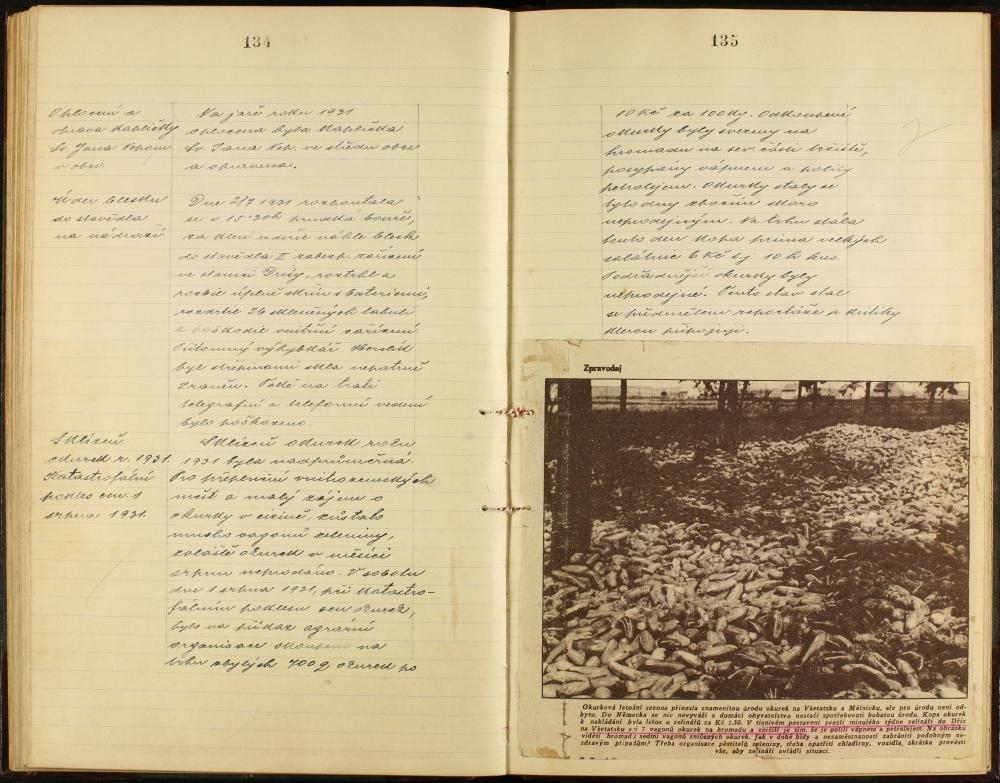 134
Oplocení a
oprava kapličky
Sv. Jana Nepom.
v obci.
Na jaře roku 1931
oplocena byla kaplička
Sv. Jana Nep. ve středu obce
a opravena.
Úder blesku
do stavědla
na nádraží
Dne 2/7 1931 rozpoutala
se v 15.20h prudká bouře,
za které udeřil náhle blesk
do stavědla II zabezp. zařízení
ve stanici Dřísy, roztrhl a
rozbil úplně skříň s bateriemi,
rozdrtil 26 skleněných tabulí
a poškodil vnitřní zařízení.
Přítomný výhybkář
byl střepinami skla nepatrně
zraněn. Také na trati
telegrafní a telefonní vedení
bylo poškozeno.
Sklizeň
okurek r. 1931.
Katastrofální
pokles cen v
srpnu 1931.
Sklizeň okurek roku
1931 byla nadprůměrná.
Pro přeplnění vnitrozemských
měst a malý zájem o
okurky v cizině, zůstalo
mnoho vagonů zeleniny,
zvláště okurek v měsíci
srpnu neprodáno. V sobotu
dne 1 srpna 1931, při katastro-
fálním poklesu cen okurek,
bylo na příkaz agrární
organisace skoupeno na
trhu zbylých 700 q okurek po
135
10 Kč za 100 kg. Odkoupené
okurky byly svezeny na
hromadu na sev. části tržiště,
posypány vápnem a polity
petrolejem. Okurky staly se
tyto dny zbožím skoro
neprodejným. Na trhu stála
tento den kopa prima velkých
salátnic 6 Kč t.j. 10 h kus.
Podřadnější okurky byly
neprodejné. Tento stav stal
se předmětem reportáže a kritiky
kterou připojuji.
Zpravodaj
Okurková letošní sezona přinesla znamenitou úrodu okurek na Všetatsku a Mělnicku, ale pro úrodu není od-
bytu. Do Německa se nic nevyváží a domácí obyvatelstvo nestačí spotřebovati bohatou úrodu. Kopa okurek
k nakládání byla letos u zelinářů za Kč 1.50. V tísnivém postavení svezli minulého týdne zelináři do Dřís
na Všetatsku na 7 vagonů okurek na hromadu a zničili je tím, že je polili vápnem a petrolejem. Na obrázku
viděti hromadu sedmi vagonů zničených okurek. Jak v době bídy a nezaměstnanosti zabrániti podobným ne-
zdravým případům? Třeba organisace pěstitelů zeleniny, třeba opatřiti chladírny, vozidla, zkrátka provésti
vše, aby zelináři ovládli situaci.